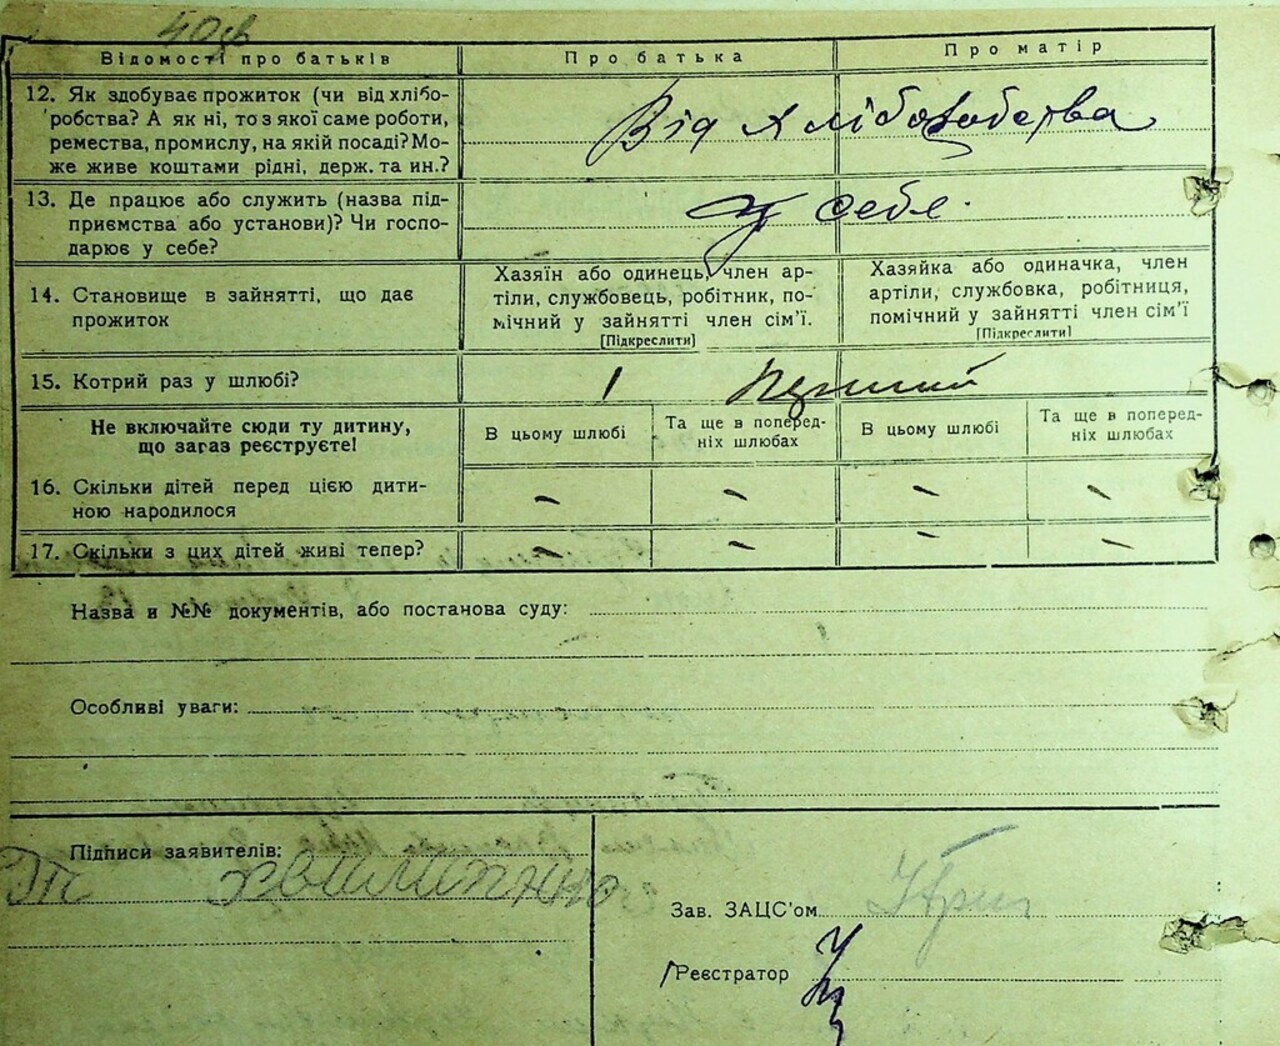 40
Відомості про батьків
Про батька
Про матір
12. Як здобуває прожиток (чи від хлібо-
робства? А як ні, то з якої саме роботи,
ремества, промислу, на якій посаді? Мо-
же живе коштами рідні, держ. та ин.?
Від хліборобства
13. Де працює або служить (назва під-
приємства або установи)? Чи госпо-
дарює у себе?
у себе.
14. Становище в зайнятті, що дає
прожиток
Хазяїн або одинець, член ар-
тіли, службовець, робітник, по-
мічний у зайнятті член сім'ї.
[Підкреслити]
Хазяйка або одиначка, член
артіли, службовка, робітниця,
помічний у зайнятті член сім'ї
[Підкреслити]
15. Котрий раз у шлюбі?
1
Не включайте сюди ту дитину,
що загаз реєструєте!
В цьому шлюбі
Та ще в поперед-
ніх шлюбах
В цьому шлюбі
Та ще в поперед-
ніх шлюбах
16. Скільки дітей перед цією дити-
ною народилося
– – – –
17. Скільки з цих дітей живі тепер?
– – – –
Назва и №№ документів, або постанова суду:
Особливі уваги:
Підписи заявителів:
Зав. ЗАЦС'ом
Реєстратор